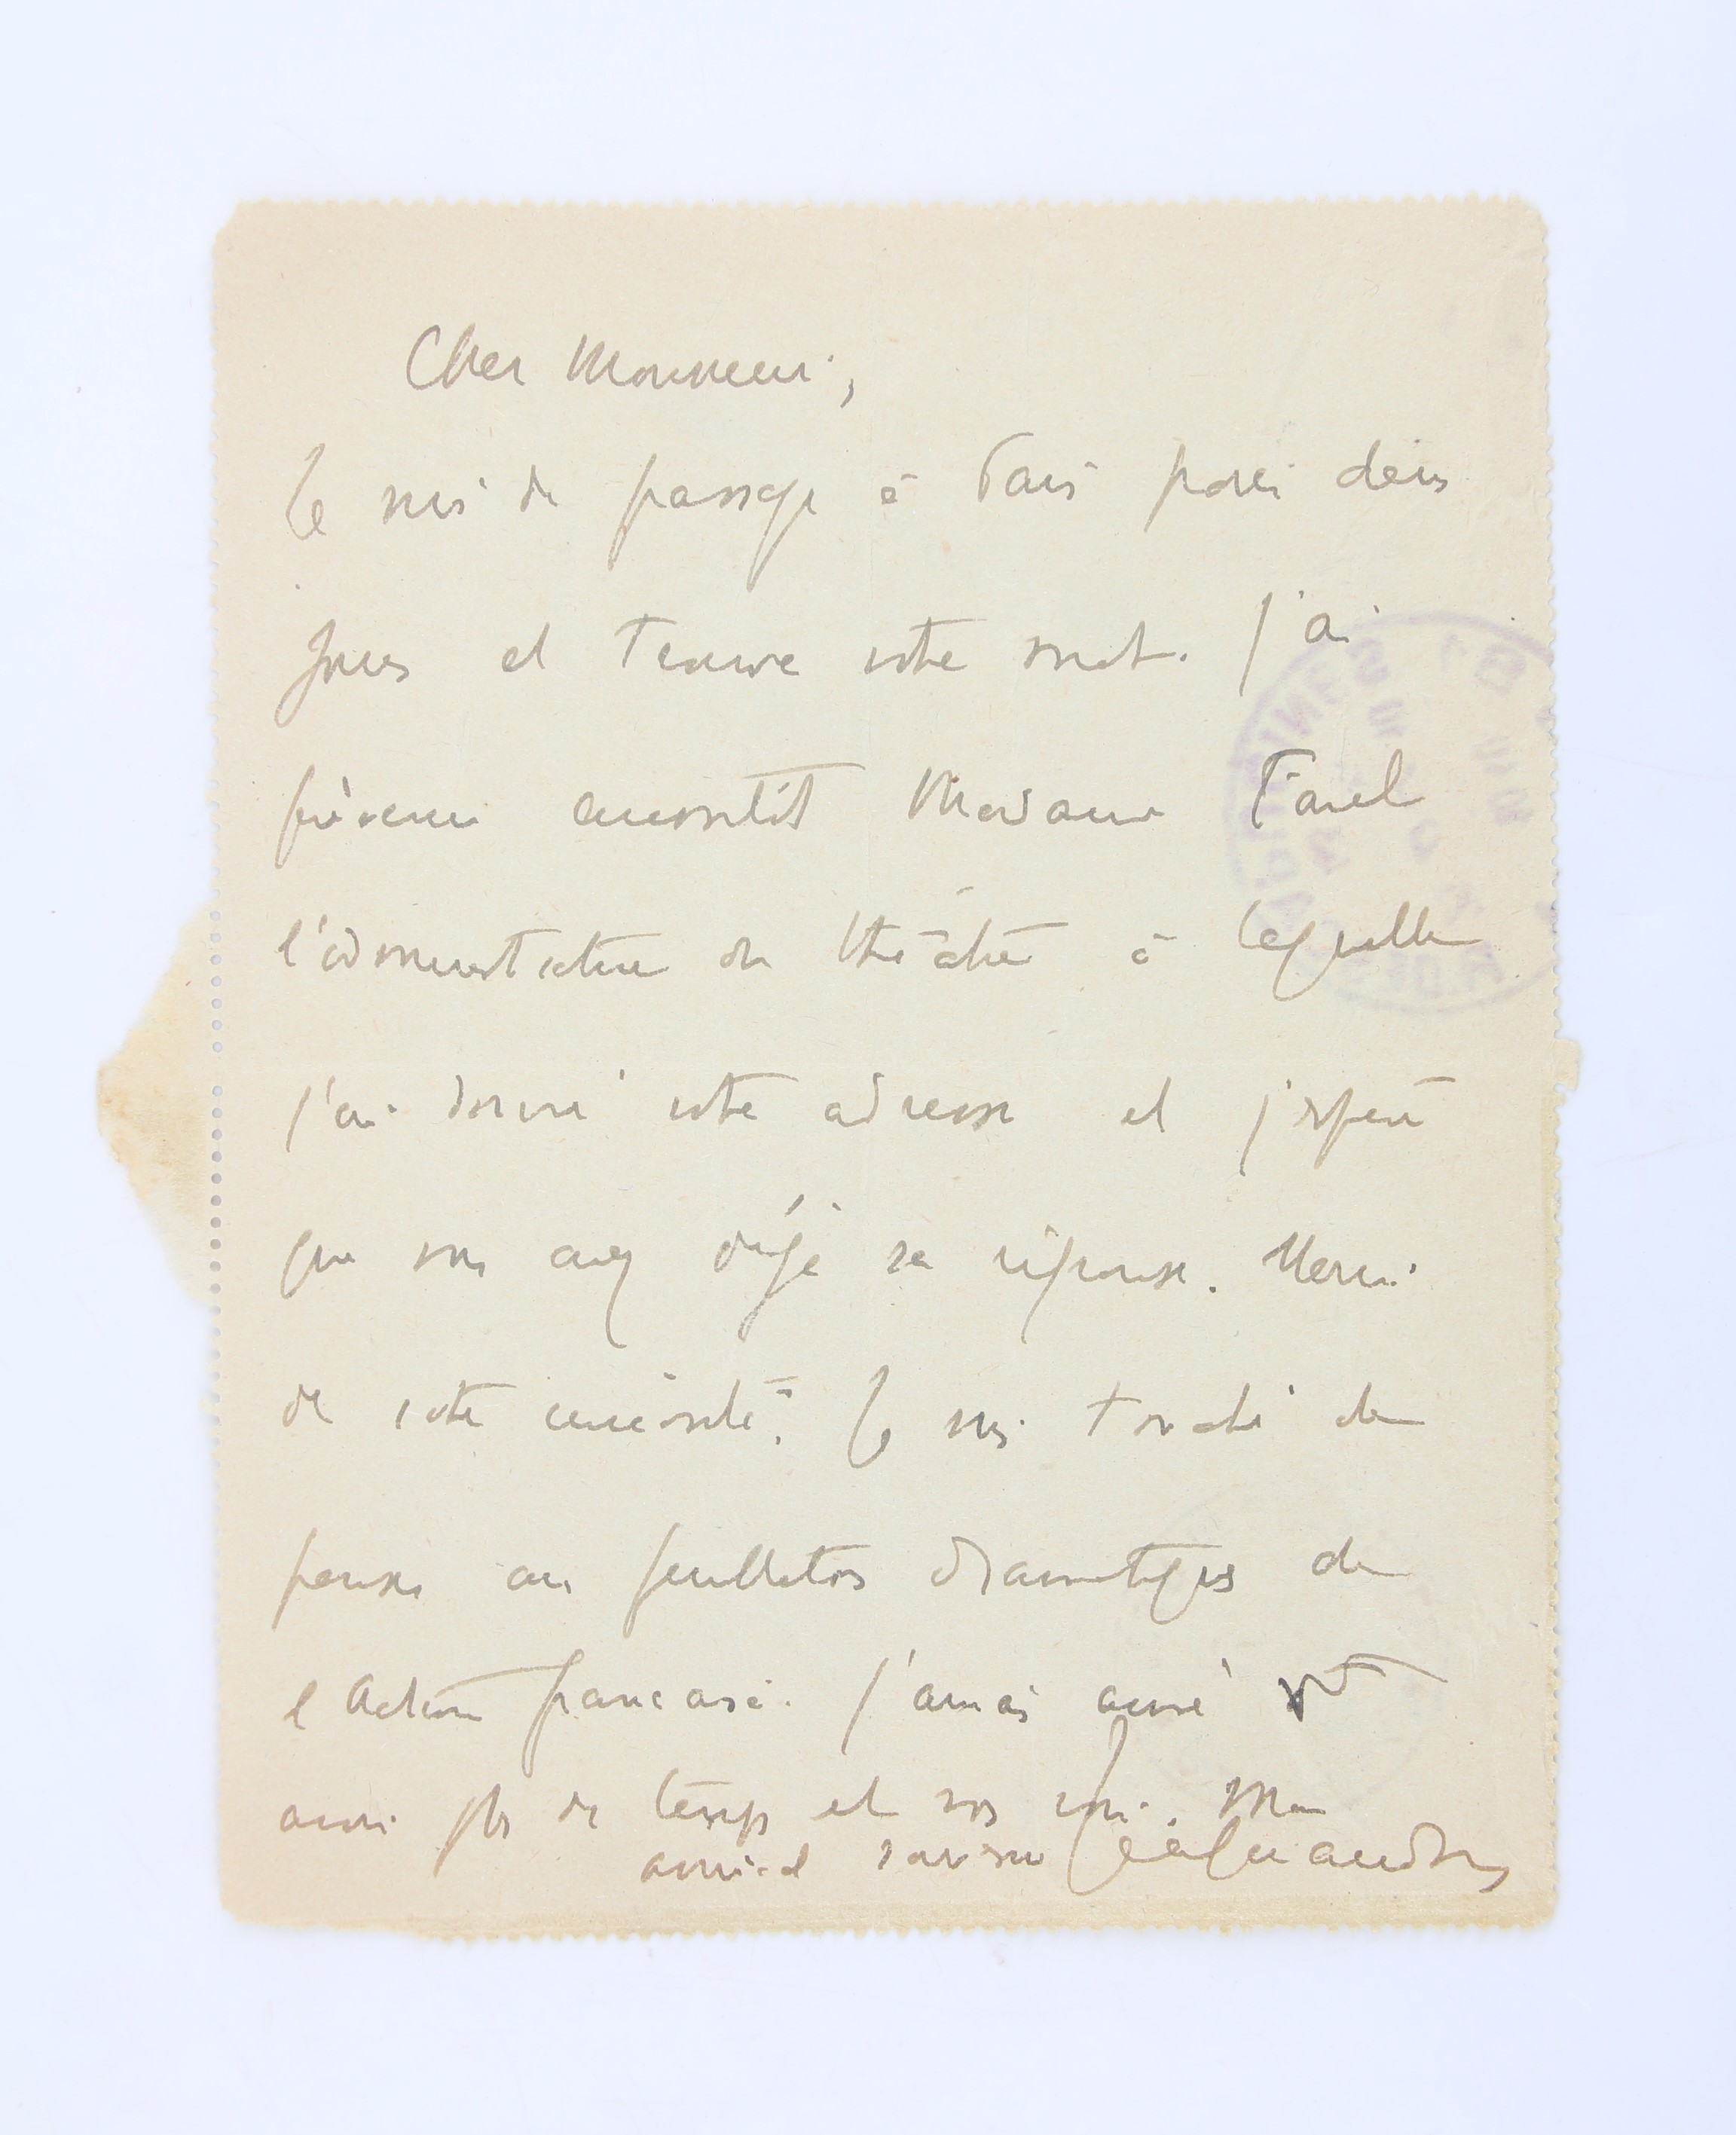 Cher Monsieur,
Je suis de passage à Paris pour deux
jours et trouve votre mot. J'ai
prévenu aussitôt Madame
l'administratrice du théâtre à laquelle
j'ai donné votre adresse et j'espère
que vous avez déjà sa réponse. Merci
de votre curiosité. Je suis touché de
penser au feuilleton dramatique de
l'Action française. J'aurais aimé
avoir plus de temps et vous voir. Mon
amical souvenir